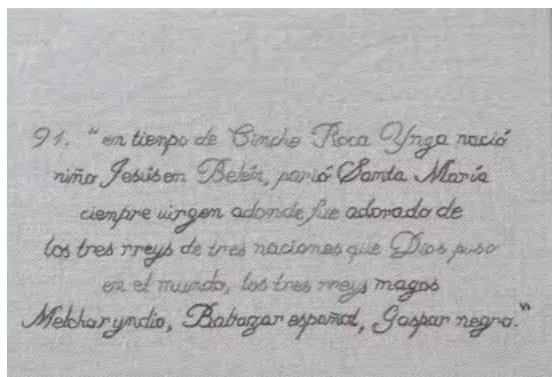 91. "en tienpo de Cinche Roca Ynga nació
niño Jesús en Belén, parió Santa María
cienpre uirgen adonde fue adorado de
los tres rreys de tres naciones que Dios puso
en el mundo, los tres rreys magos
Melchar yndio, Baltazar español, Gaspar negro."